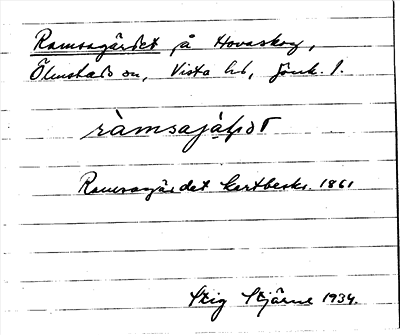 Ramsagärdet på Hovaskog,
Ölmstads sn, Vista hd, Jönk. l.
Ramsagärdet kartbeskr. 1861
Stig Stjärne 1934.